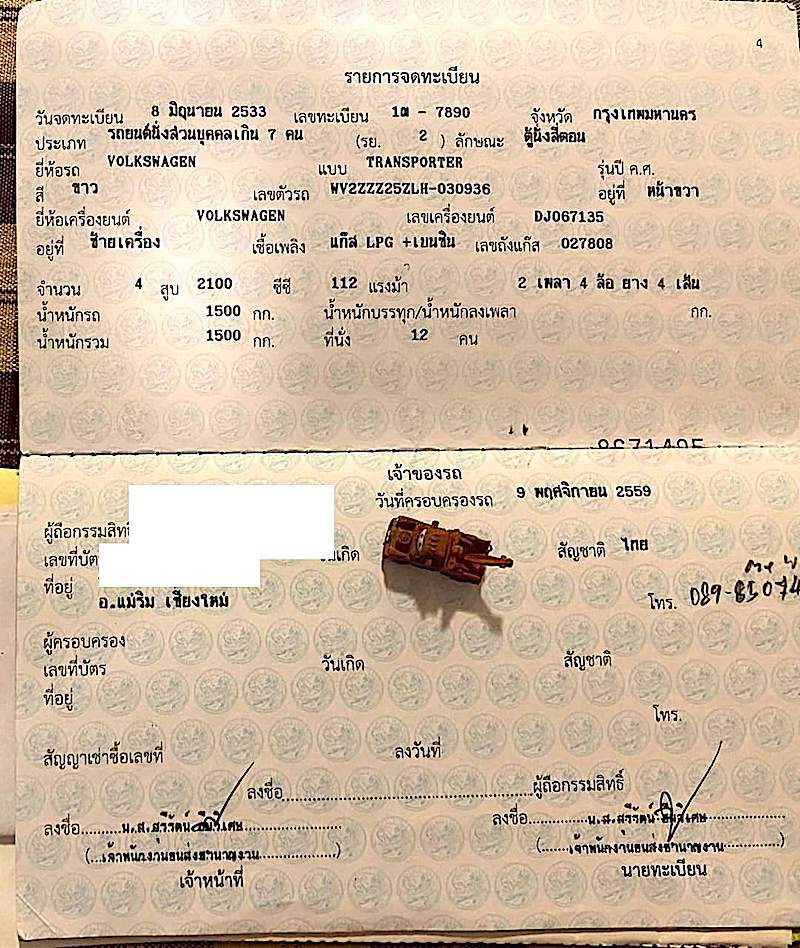 4
รายการจดทะเบียน
วันจดทะเบียน 8 มิถุนายน 2533 เลขทะเบียน 1ต - 7890 จังหวัด กรุงเทพมหานคร
ประเภท รถยนต์นั่งส่วนบุคคลเกิน 7 คน (รย. 2 ) ลักษณะ ตู้นั่งสี่ตอน
ยี่ห้อรถ VOLKSWAGEN แบบ TRANSPORTER รุ่นปี ค.ศ.
สี ขาว เลขตัวรถ WV2ZZZ25ZLH-030936 อยู่ที่ หน้าขวา
ยี่ห้อเครื่องยนต์ VOLKSWAGEN เลขเครื่องยนต์ DJ067135
อยู่ที่ ซ้ายเครื่อง เชื้อเพลิง แก๊ส LPG +เบนซิน เลขถังแก๊ส 027808
จำนวน 4 สูบ 2100 ซีซี 112 แรงม้า 2 เพลา 4 ล้อ ยาง 4 เส้น
น้ำหนักรถ 1500 กก. น้ำหนักบรรทุก/น้ำหนักลงเพลา กก.
น้ำหนักรวม 1500 กก. ที่นั่ง 12 คน
เจ้าของรถ
วันที่ครอบครองรถ 9 พฤศจิกายน 2559
ผู้ถือกรรมสิทธิ์
เลขที่บัตร วันเกิด สัญชาติ ไทย
ที่อยู่
อ.แม่ริม เชียงใหม่ โทร. 089-85074
ผู้ครอบครอง
เลขที่บัตร วันเกิด สัญชาติ
ที่อยู่
โทร.
สัญญาเช่าซื้อเลขที่ ลงวันที่
ลงชื่อ ผู้ถือกรรมสิทธิ์
ลงชื่อ น.ส.สุรีรัตน์ ลงชื่อ น.ส.สุรีรัตน์
(เจ้าพนักงานขนส่งชำนาญงาน) (เจ้าพนักงานขนส่งชำนาญงาน)
เจ้าหน้าที่ นายทะเบียน